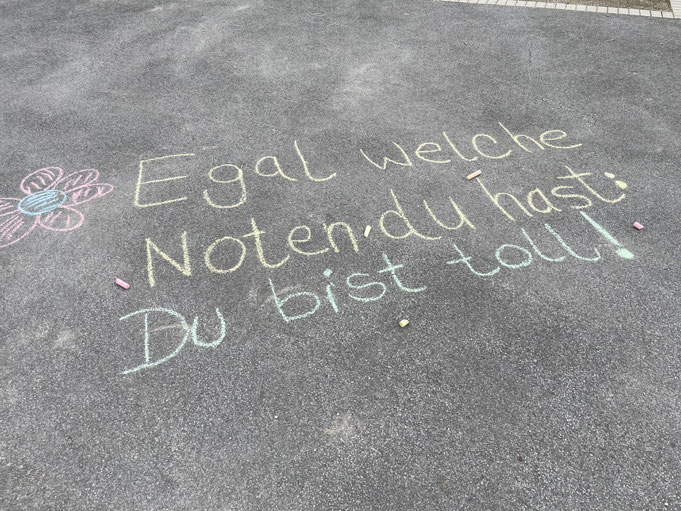 Egal welche
Noten du hast:
Du bist toll!